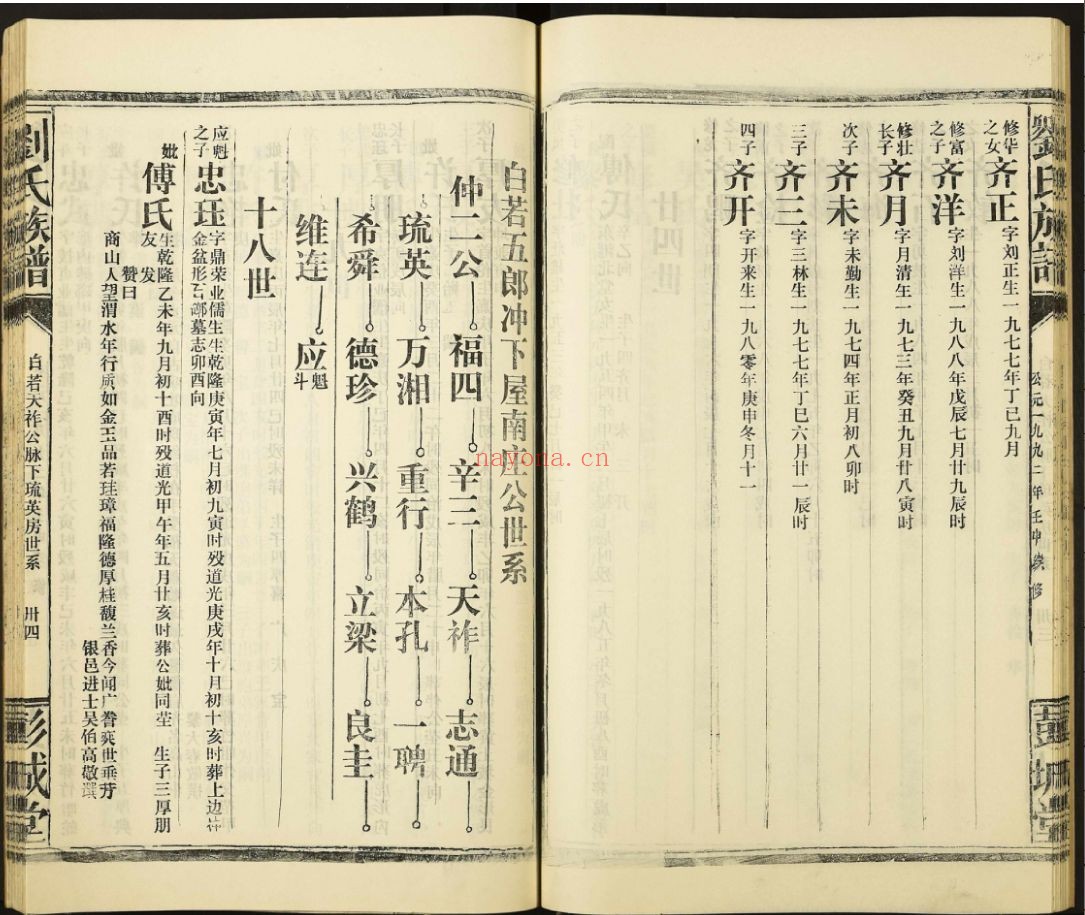 劉氏族譜
公元一九九二年壬申续修
卅三
彭城堂
修华之女 齐正 字刘正生一九七七年丁巳九月
修富之子 齐洋 字刘洋生一九八八年戊辰七月廿九辰时
修壮长子 齐月 字月清生一九七三年癸丑九月廿八寅时
次子 齐未 字未勤生一九七四年正月初八卯时
三子 齐三 字三林生一九七七年丁巳六月廿一辰时
四子 齐开 字开来生一九八零年庚申冬月十一
白若五郎冲下屋南庄公世系
仲二公 福四 辛三 天祚 志通
琉英 万湘 重行 本孔 一聘
希舜 德珍 兴鹤 立梁 良圭
维连 应魁斗
十八世
应魁之子 忠珏 字鼎荣业儒生生乾隆庚寅年七月初九寅时殁道光庚戌年十月初十亥时葬上边
金盆形 墓志卯酉向
妣 傅氏 生乾隆乙未年九月初十酉时殁道光甲午年五月廿亥时葬公妣同茔 生子三厚朋
友 发
赞曰
商山人望渭水年行质如金玉品若珪璋福隆德厚桂馥兰香今闻广誉奕世垂芳
银邑进士吴伯高敬撰
劉氏族譜
白若天祚公脉下琉英房世系
卅四
彭城堂
nayona.cn